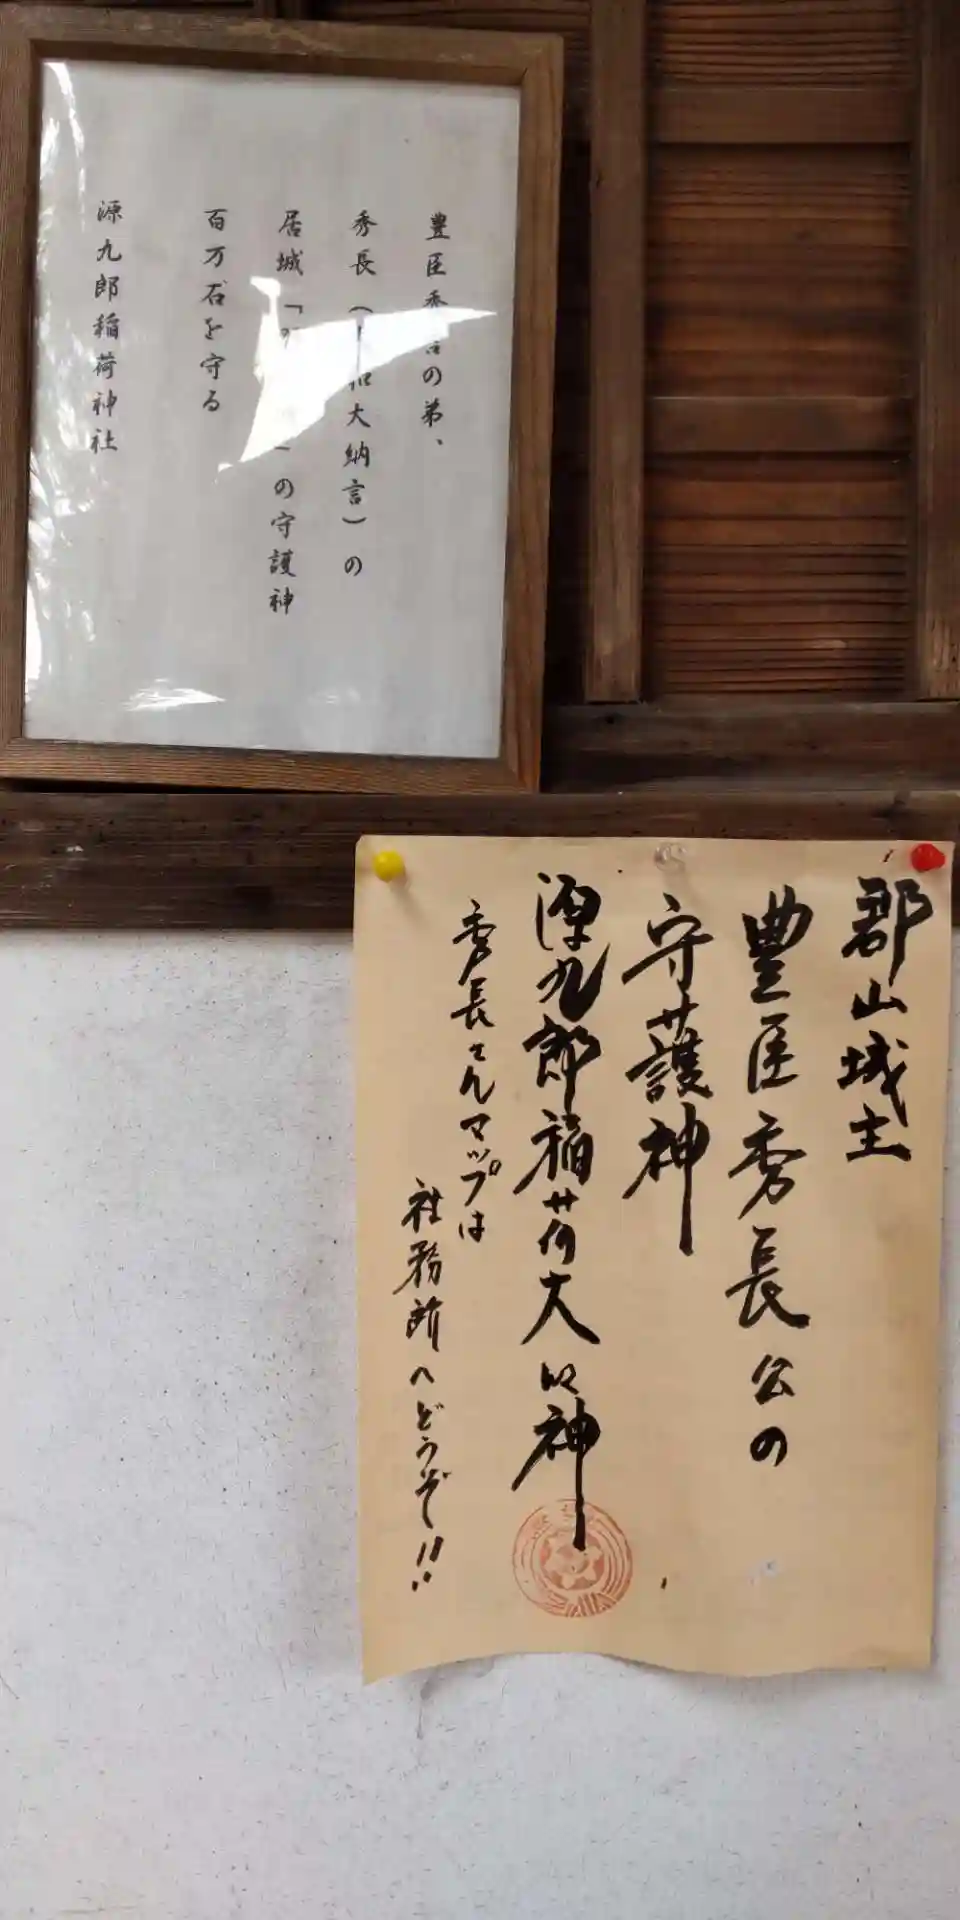 豊臣秀吉の弟、
秀長（大和大納言）の
居城「 」の守護神
百万石を守る
源九郎稲荷神社
郡山城主
豊臣秀長公の
守護神
源九郎稲荷大明神
秀長さんマップは
社務所へどうぞ!!